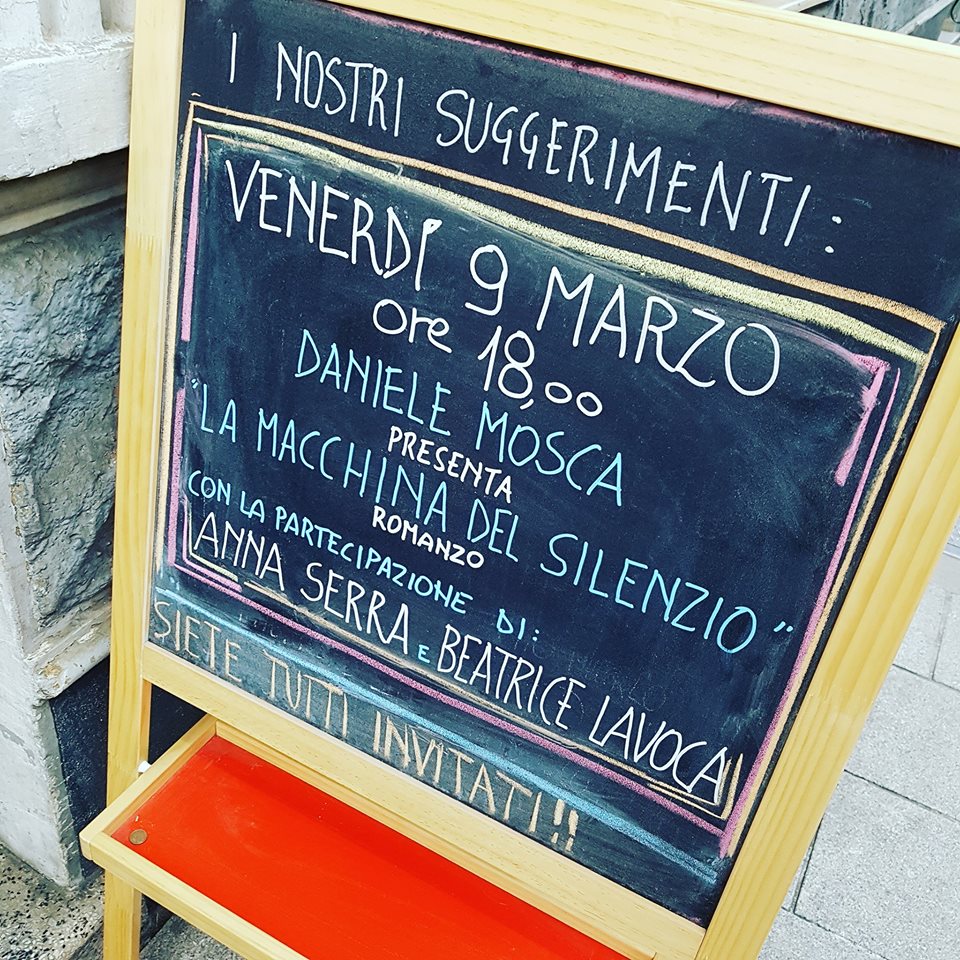 I NOSTRI SUGGERIMENTI:
VENERDÍ 9 MARZO
Ore 18,00
DANIELE MOSCA
PRESENTA
"LA MACCHINA DEL SILENZIO"
ROMANZO
CON LA PARTECIPAZIONE DI:
ANNA SERRA E BEATRICE LAVOCA
SIETE TUTTI INVITATI!!